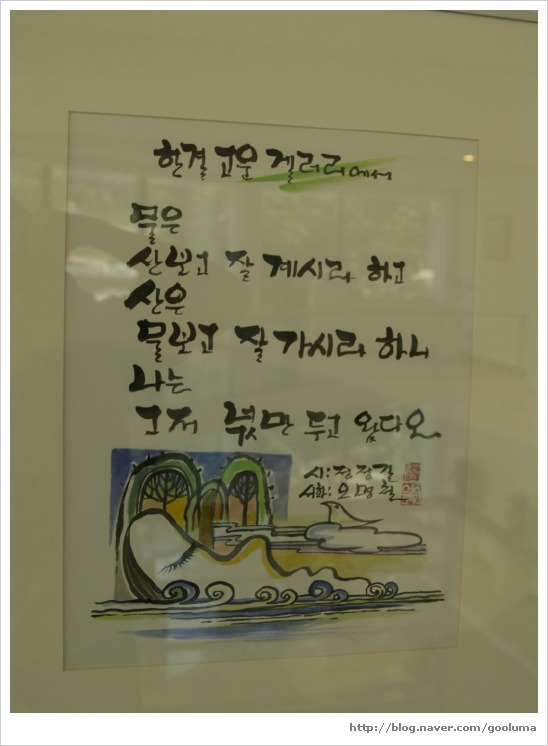 한결고운 겔러리에서
물은
산보고 잘 계시라 하고
산은
물보고 잘 가시라 하니
나는
그저 넋만 두고 왔다오
시: 정정길
서화: 오명철
http://blog.naver.com/gooluma